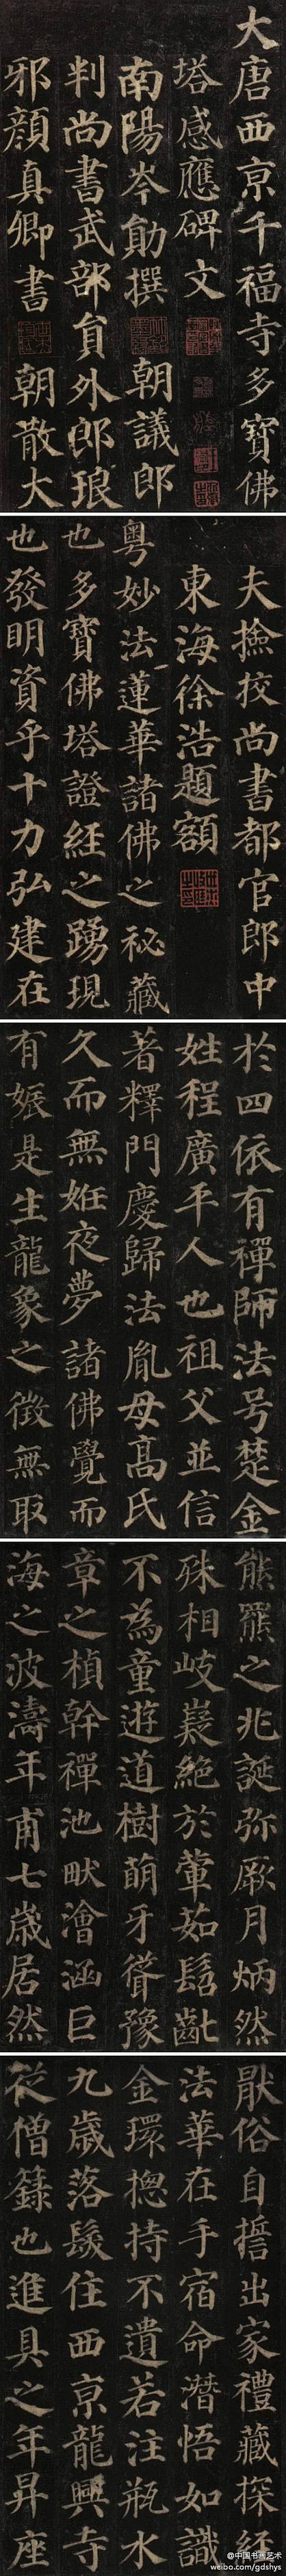 大唐西京千福寺多寶佛
塔感應碑文
南陽岑勛撰 朝議郎
判尚書武部員外郎琅
邪顏真卿書 朝散大
夫撿挍尚書都官郎中
東海徐浩題額
粵妙法蓮華諸佛之秘藏
也多寶佛塔證經之踴現
也發明資乎十力弘建在
於四依有禪師法号楚金
姓程廣平人也祖父並信
著釋門慶歸法胤母高氏
久而無姙夜夢諸佛覺而
有娠是生龍象之徵無取
熊羆之兆誕弥厥月炳然
殊相岐嶷絕於葷茹髫齔
不為童遊道樹萌牙聳豫
章之楨幹禪池畎澮涵巨
海之波濤年甫七歲居然
猒俗自誓出家禮藏探經
法華在手宿命潛悟如識
金環揔持不遺若注瓶水
九歲落髮住西京龍興寺
從僧籙也進具之年昇座
@中国书画艺术
weibo.com/gdshys